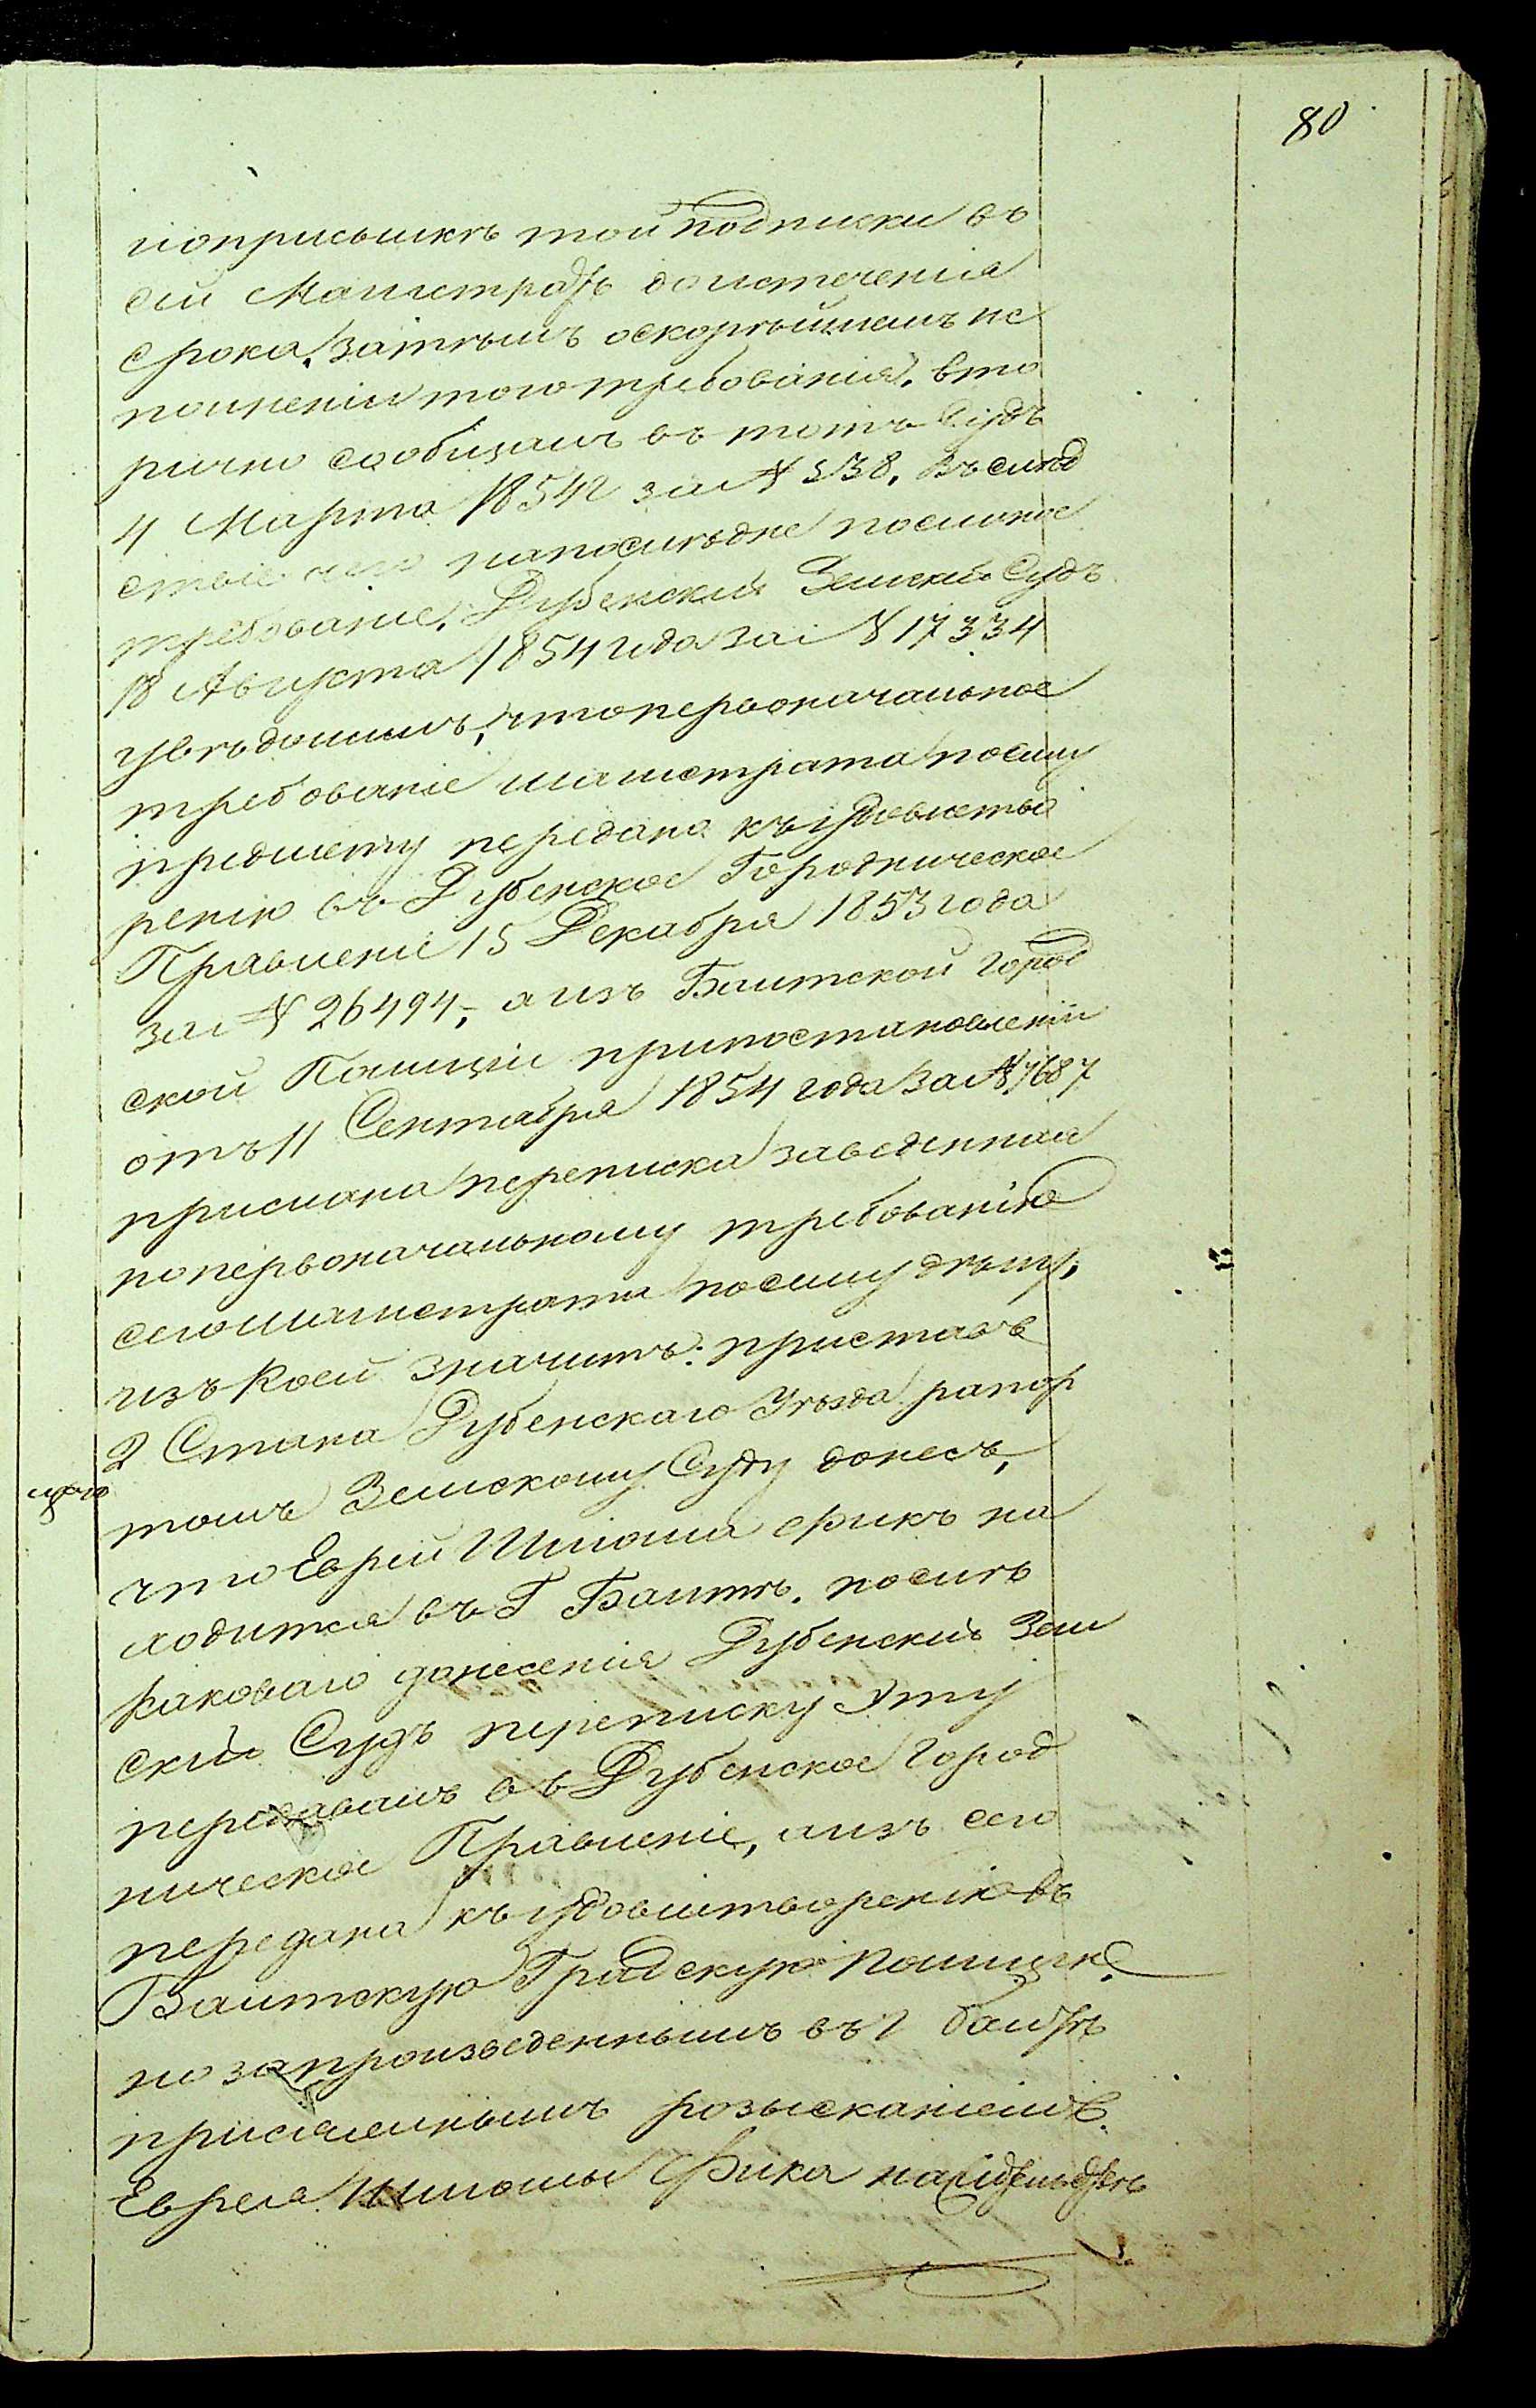 80
иоприсылкѣ той подписки въ
сей Магистратъ доистеченія
срока, затѣмъ оскорѣйшемъ ис
полненіи того требованія, вто
рично сообщалъ въ тотъ Судъ
4 Марта 1854 за № 538, въслѣд
ствіе чего напослѣдне посланное
требованіе, Дубенскій Земскій Судъ
18 Августа 1854 года за № 17334
увѣдомилъ, чтопервоначальное
требованіе магистрата посему
предмету передано къудовлетво
ренію въ Дубенское Городническое
Правленіе 15 Декабря 1853 года
за № 26494, а изъ Балтской Город
ской Полиціи припостановленіи
отъ 11 Сентября 1854 года за № 7687
прислана переписка заведенная
попервоначальному требованію
сегомагистрата посему дѣлу,
изъ коей значитъ: приставъ
2 Стана Дубенскаго Уѣзда рапор
томъ Земскому Суду донесъ,
что Еврей Шліома Фикъ на
ходится въ Г Балтѣ. послѣ
каковаго донесенія Дубенскій Зем
скій Судъ переписку эту
передавалъ въ Дубенское Город
ническое Правленіе, аизъ сего
передана къудовлетворенію въ
Балтскую Градскую Полицію,
но запроизведеннымъ въ г Балтѣ
розысканіемъ
Еврея Шліомы Фика